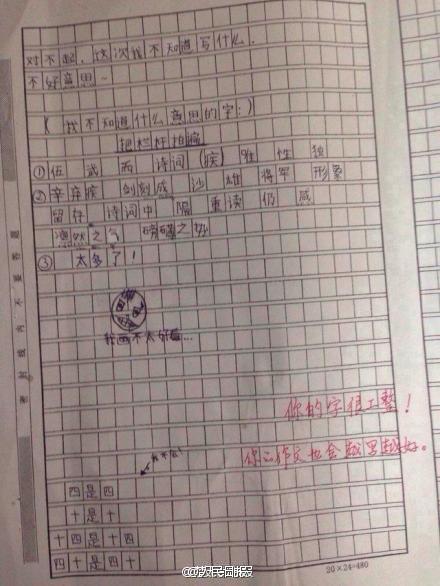 对不起，这次我不知道写什么.
不好意思~
(我不知道什么意思的字:)
把栏杆拍遍
① 伍 武 而 诗词 疾 性 独
② 辛弃疾 剑刻成 沙 雄 将军 形象
留存 诗词中 陽 重读 仍 感
浩然之气 磅礴之势
③ 太多了!
我画不太好看...
你的字很工整!
你的作文也会越写越好。
四是四
十是十
十四是十四
四十是四十
20×24=480
密封线内不要答题